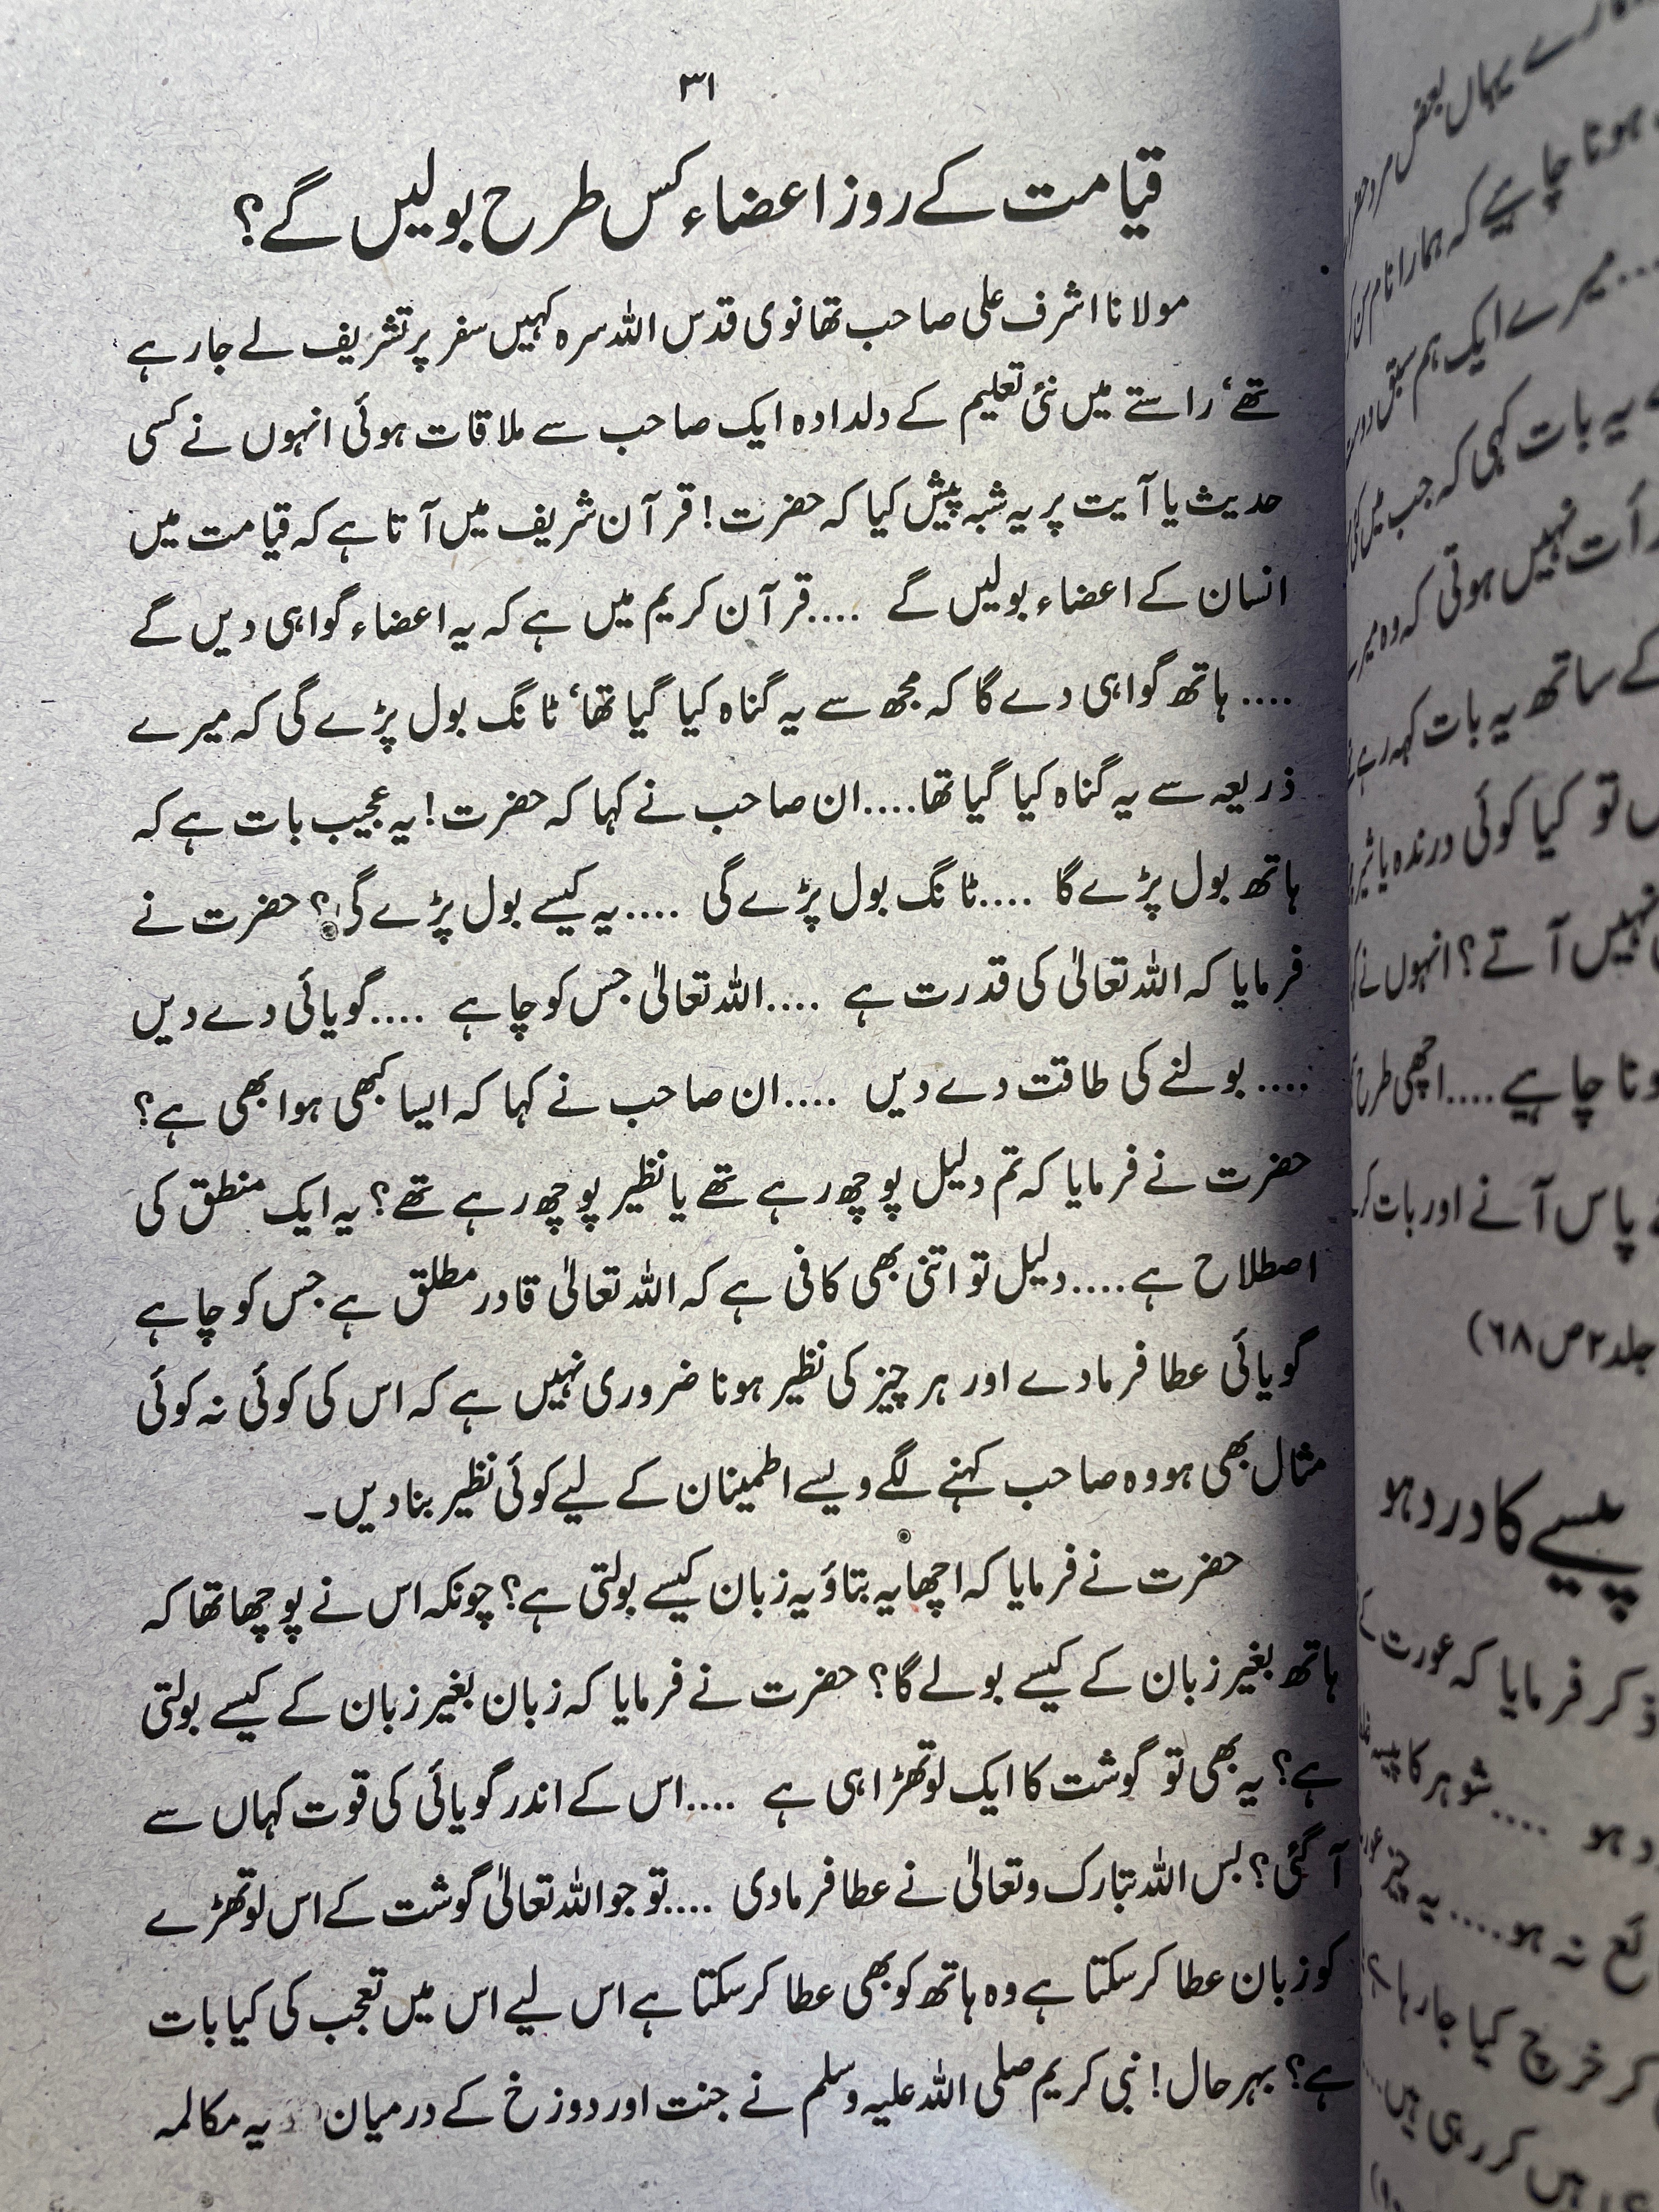 ۳۱
قیامت کے روز اعضاء کس طرح بولیں گے؟
مولانا اشرف علی صاحب تھانوی قدس اللہ سرہ کہیں سفر پر تشریف لے جا رہے
تھے، راستے میں نئی تعلیم کے دلدادہ ایک صاحب سے ملاقات ہوئی انہوں نے کسی
حدیث یا آیت پر یہ شبہ پیش کیا کہ حضرت! قرآن شریف میں آتا ہے کہ قیامت میں
انسان کے اعضاء بولیں گے ....قرآن کریم میں ہے کہ یہ اعضاء گواہی دیں گے
.... ہاتھ گواہی دے گا کہ مجھ سے یہ گناہ کیا گیا تھا، ٹانگ بول پڑے گی کہ میرے
ذریعہ سے یہ گناہ کیا گیا تھا....ان صاحب نے کہا کہ حضرت! یہ عجیب بات ہے کہ
ہاتھ بول پڑے گا ....ٹانگ بول پڑے گی ....یہ کیسے بول پڑے گی؟ حضرت نے
فرمایا کہ اللہ تعالیٰ کی قدرت ہے ....اللہ تعالیٰ جس کو چاہے ....گویائی دے دیں
.... بولنے کی طاقت دے دیں ....ان صاحب نے کہا کہ ایسا کبھی ہوا بھی ہے؟
حضرت نے فرمایا کہ تم دلیل پوچھ رہے تھے یا نظیر پوچھ رہے تھے؟ یہ ایک منطق کی
اصطلاح ہے....دلیل تو اتنی بھی کافی ہے کہ اللہ تعالیٰ قادر مطلق ہے جس کو چاہے
گویائی عطا فرما دے اور ہر چیز کی نظیر ہونا ضروری نہیں ہے کہ اس کی کوئی نہ کوئی
مثال بھی ہو وہ صاحب کہنے لگے ویسے اطمینان کے لیے کوئی نظیر بنا دیں۔
حضرت نے فرمایا کہ اچھا یہ بتاؤ یہ زبان کیسے بولتی ہے؟ چونکہ اس نے پوچھا تھا کہ
ہاتھ بغیر زبان کے کیسے بولے گا؟ حضرت نے فرمایا کہ زبان بغیر زبان کے کیسے بولتی
ہے؟ یہ بھی تو گوشت کا ایک لوتھڑا ہی ہے ....اس کے اندر گویائی کی قوت کہاں سے
آ گئی؟ بس اللہ تبارک وتعالیٰ نے عطا فرما دی ....تو جو اللہ تعالیٰ گوشت کے اس لوتھڑے
کو زبان عطا کر سکتا ہے وہ ہاتھ کو بھی عطا کر سکتا ہے اس لیے اس میں تعجب کی کیا بات
ہے؟ بہر حال! نبی کریم صلی اللہ علیہ وسلم نے جنت اور دوزخ کے درمیان یہ مکالمہ
یہاں بعض
ہونا چاہیے کہ ہمارا نام سن کر
....میرے ایک ہم سبق
یہ بات کہی کہ جب میں
نہیں ہوتی کہ وہ میرے
کے ساتھ یہ بات کہہ رہے
تو کیا کوئی درندہ یا شیر
نہیں آتے؟ انہوں نے
چاہیے....اچھی طرح
پاس آنے اور بات
جلد ۲ ص ۶۸)
پیسے کا درد ہو
ذکر فرمایا کہ عورت کے
ہو ....شوہر کا پیسہ
نہ ہو....یہ چیز
کر خرچ کیا جا رہا ہے
کر رہی ہیں